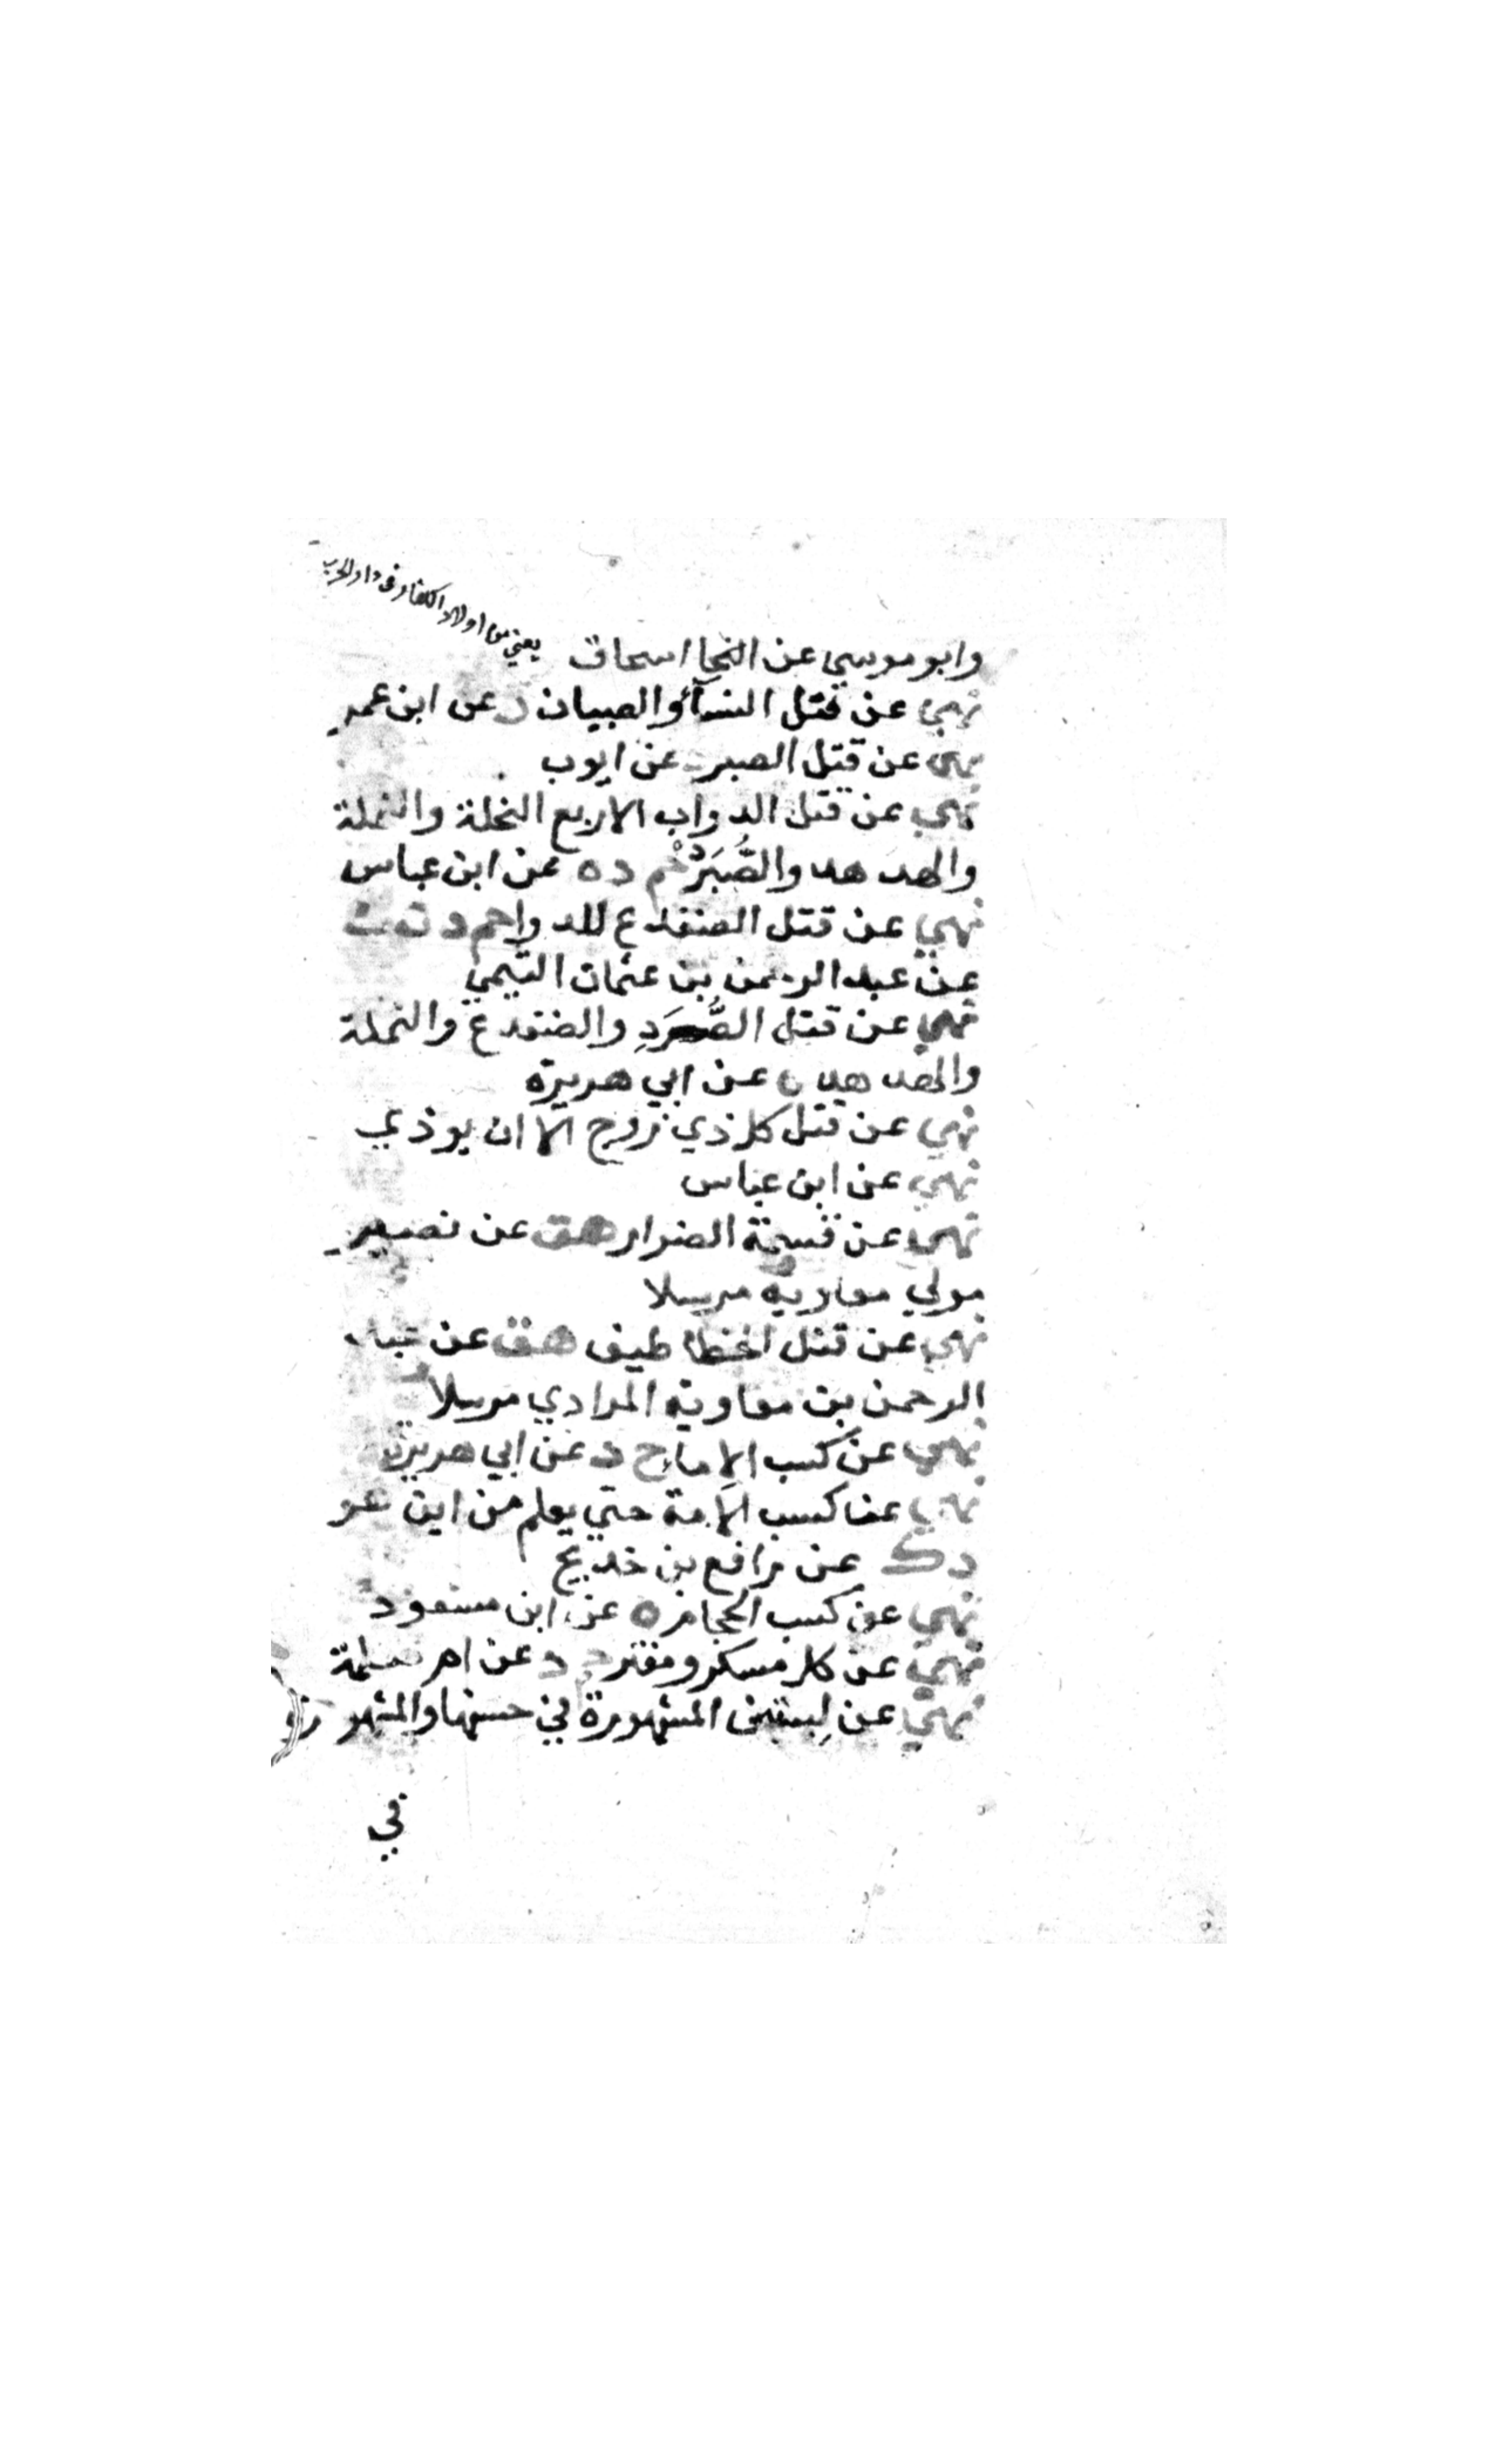 يعني من اولاد الكفار في دار الحرب
وابو موسي عن النجا اسحاق
نهي عن قتل النسآء والصبيان ق عن ابن عمر
نهي عن قتل الصبر د عن ايوب
نهي عن قتل الدواب الاربع النحلة والنملة
والهدهد والصُّرَد حم د ه عن ابن عباس
نهي عن قتل الضفدع للدوا حم د ن ك
عن عبد الرحمن بن عثمان التيمي
نهي عن قتل الصُّرَدِ والضفدع والنملة
والهدهد ه عن ابي هريرة
نهي عن قتل كل ذي روح الا ان يوذي
نهي عن ابن عباس
نهي عن قسمة الضرار هق عن نصير
مولي معاوية مرسلا
نهي عن قتل الخطاطيف هق عن عبد
الرحمن بن معاوية المرادي مرسلا
نهي عن كسب الاماء خ د عن ابي هريرة
نهي عن كسب الامة حتي يعلم من اين هو
د ك عن رافع بن خديج
نهي عن كسب الحجام ه عن ابن مسعود
نهي عن كل مسكر ومفتر حم د عن ام سلمة
نهي عن لبستين المشهورة في حسنها والمشهورة
في